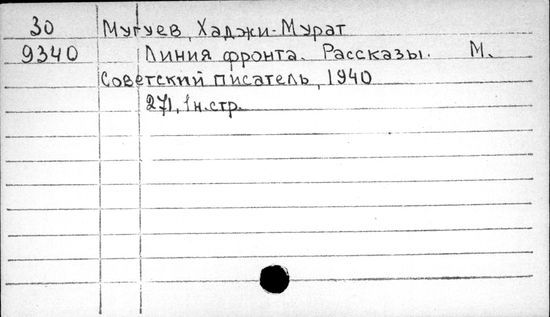 30 Мугуев, Хаджи-Мурат
9340 Линия фронта. Рассказы. М.
Советский писатель, 1940
271, 1н.стр.